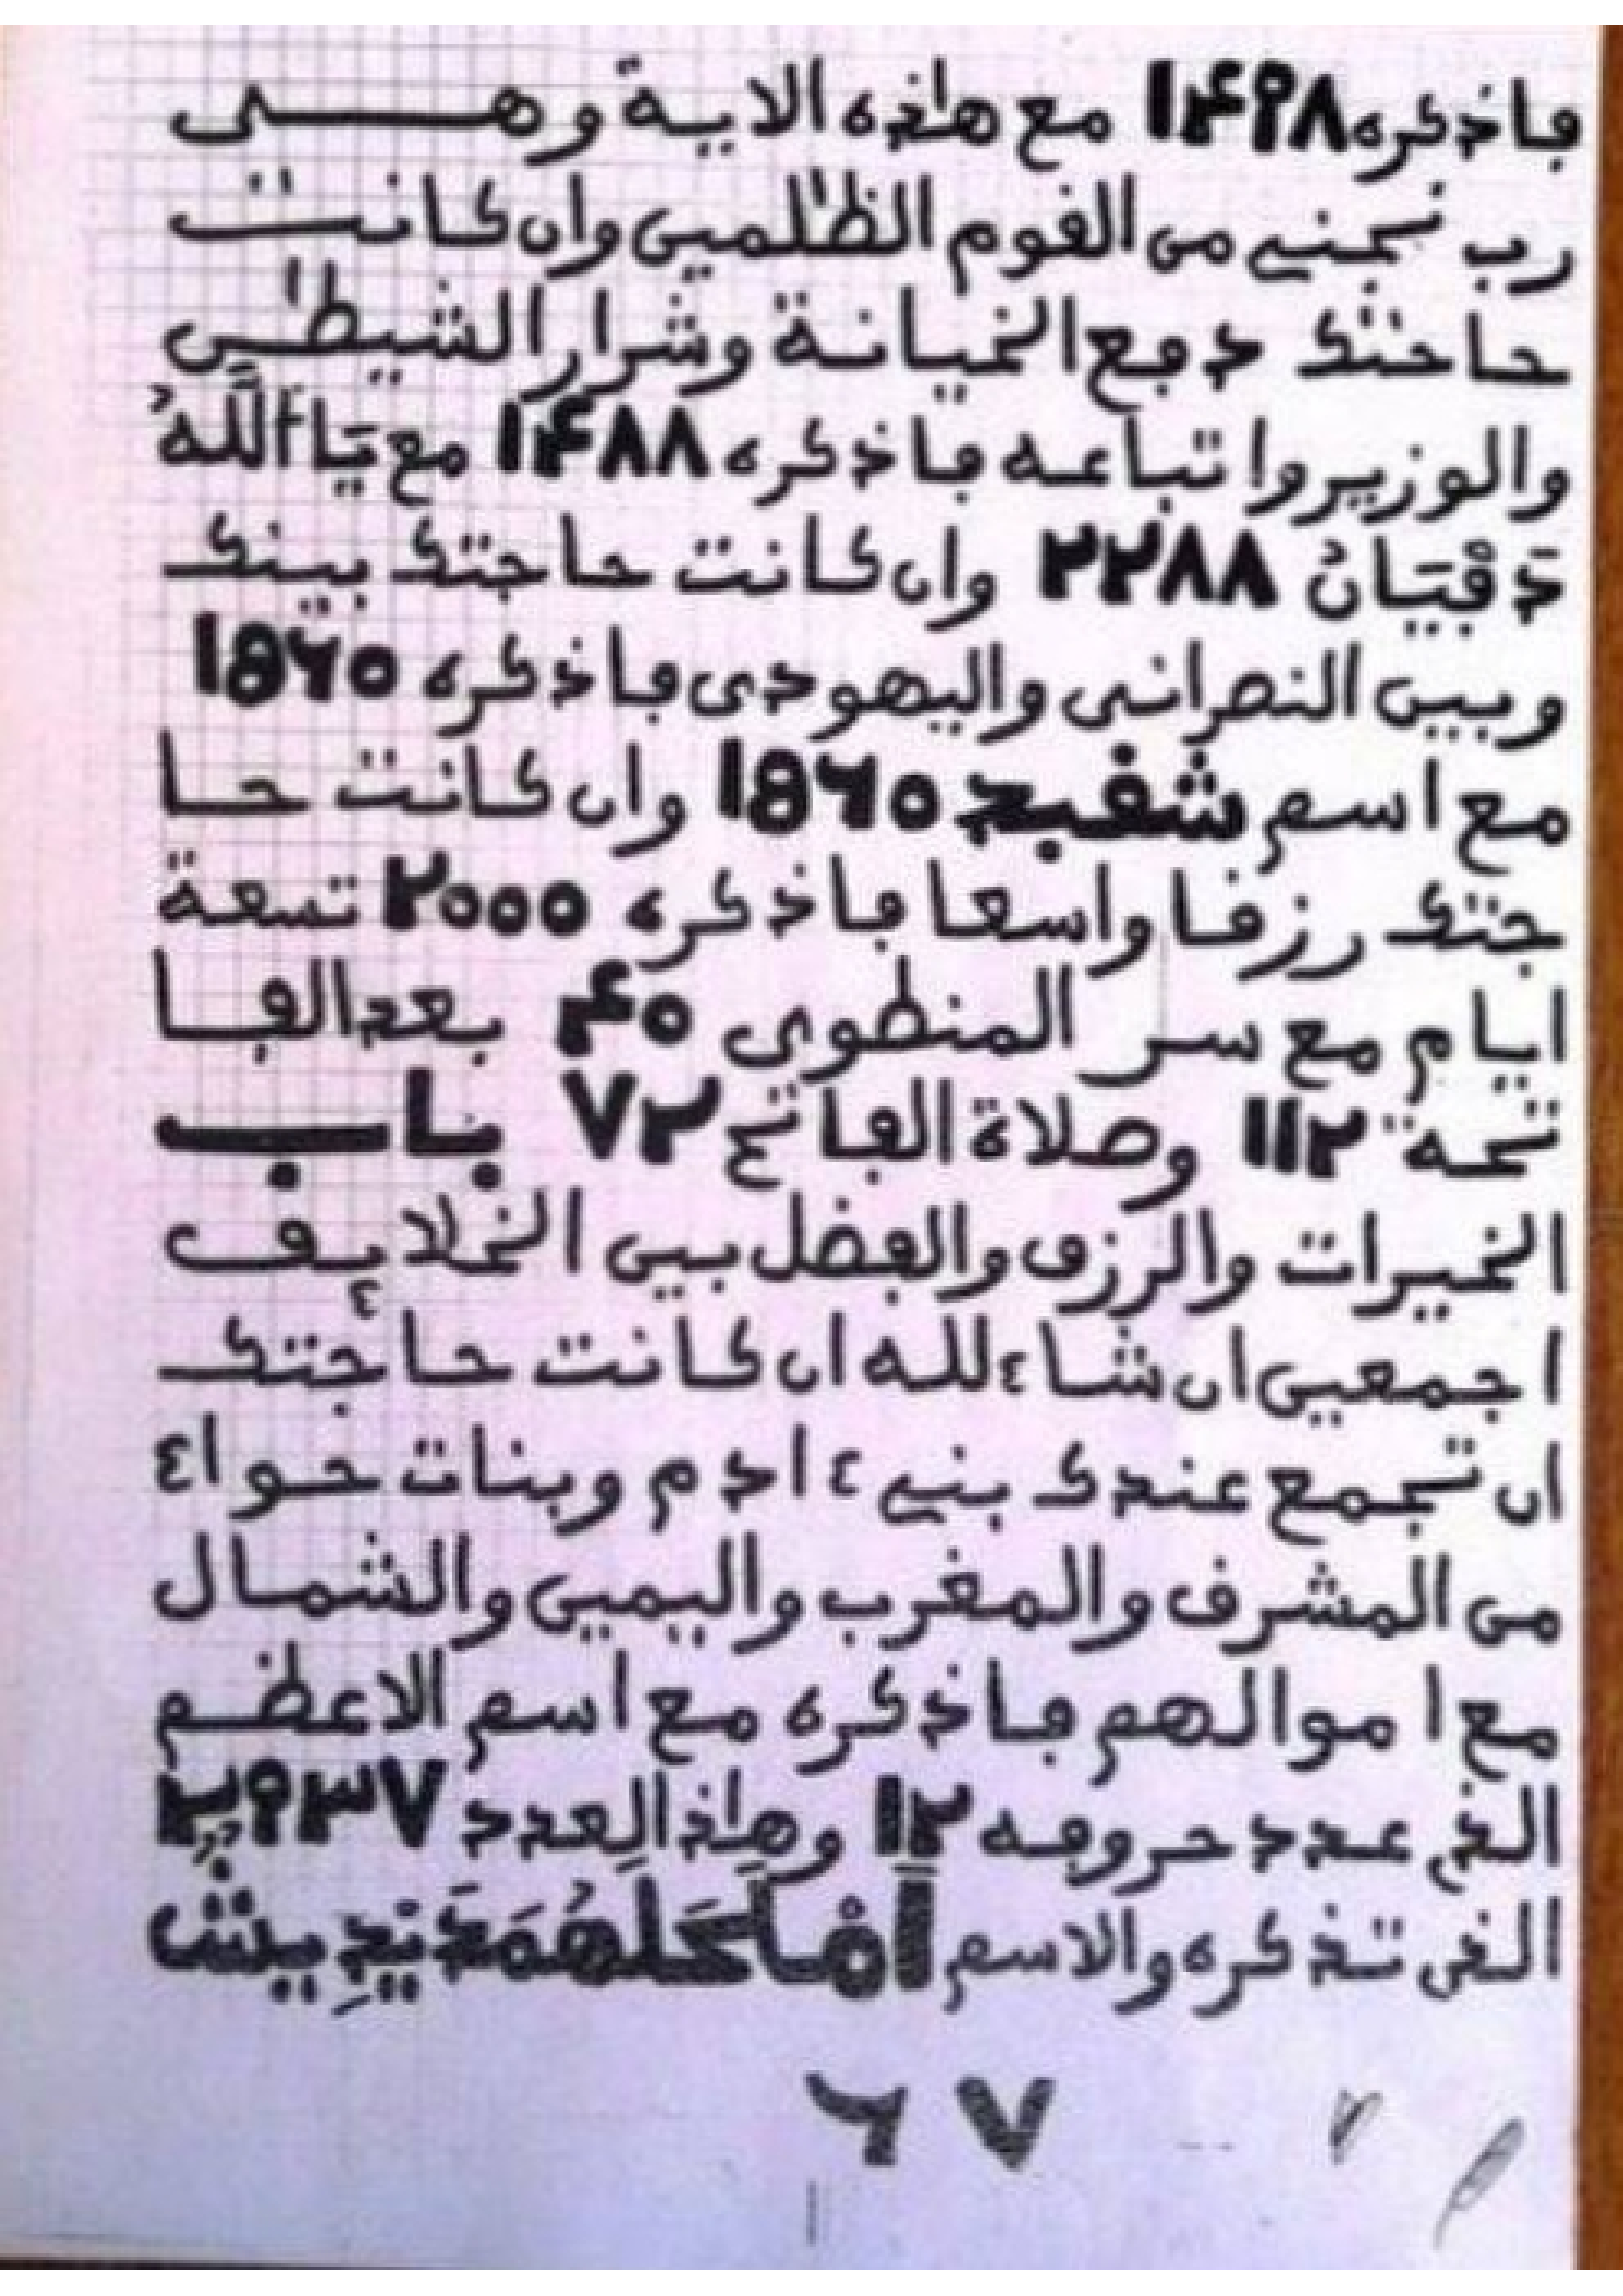 فاذكره ۱۴۹۸ مع هاذه الاية وهى
رب نجنى من القوم الظلمين وان كانت
حاجتك دفع الخيانة وشرار الشيطين
والوزير واتباعه فاذكره ۱۴۸۸ مع يَا اَللَّهُ
دَفْيَانُ ۲۲۸۸ وان كانت حاجتك بينك
وبين النصرانى واليهودى فاذكره ۱۵۶۵
مع اسم شفيع ۱۵۶۵ وان كانت حا
جتك رزقا واسعا فاذكره ۲۰۰۰ تسعة
ايام مع سر المنطوى ۴۵ بعد الفا
تحة ۱۱۲ وصلاة الفاتح ۷۲ باب
الخيرات والرزق والفضل بين الخلايق
اجمعين ان شاء لله ان كانت حاجتك
ان تجمع عندك بنىء ادم وبنات حواء
من المشرق والمغرب واليمين والشمال
مع اموالهم فاذكره مع اسم الاعظم
الذى عدد حروفه ۱۲ وهاذا العدد ۲۹۳۷
الذى تذكره والاسم
۶۷